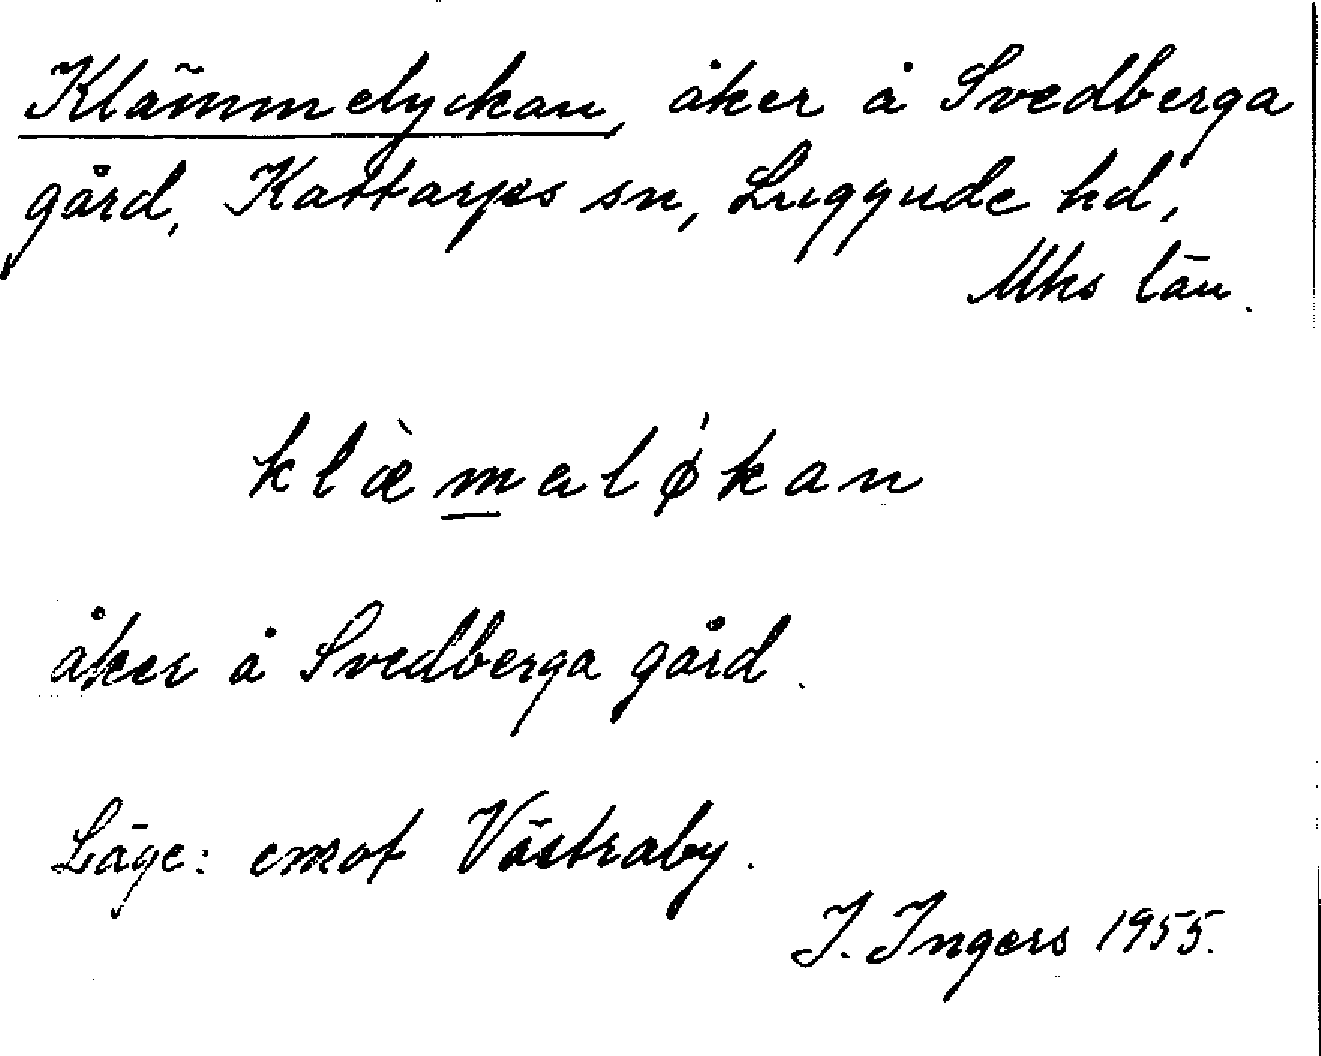 Klämmelyckan, åker å Svedberga
gård, Kattarps sn, Luggude hd,
Mhs län.
klæ̀malǿkan
åker å Svedberga gård.
Läge: emot Västraby.
I. Ingers 1955.